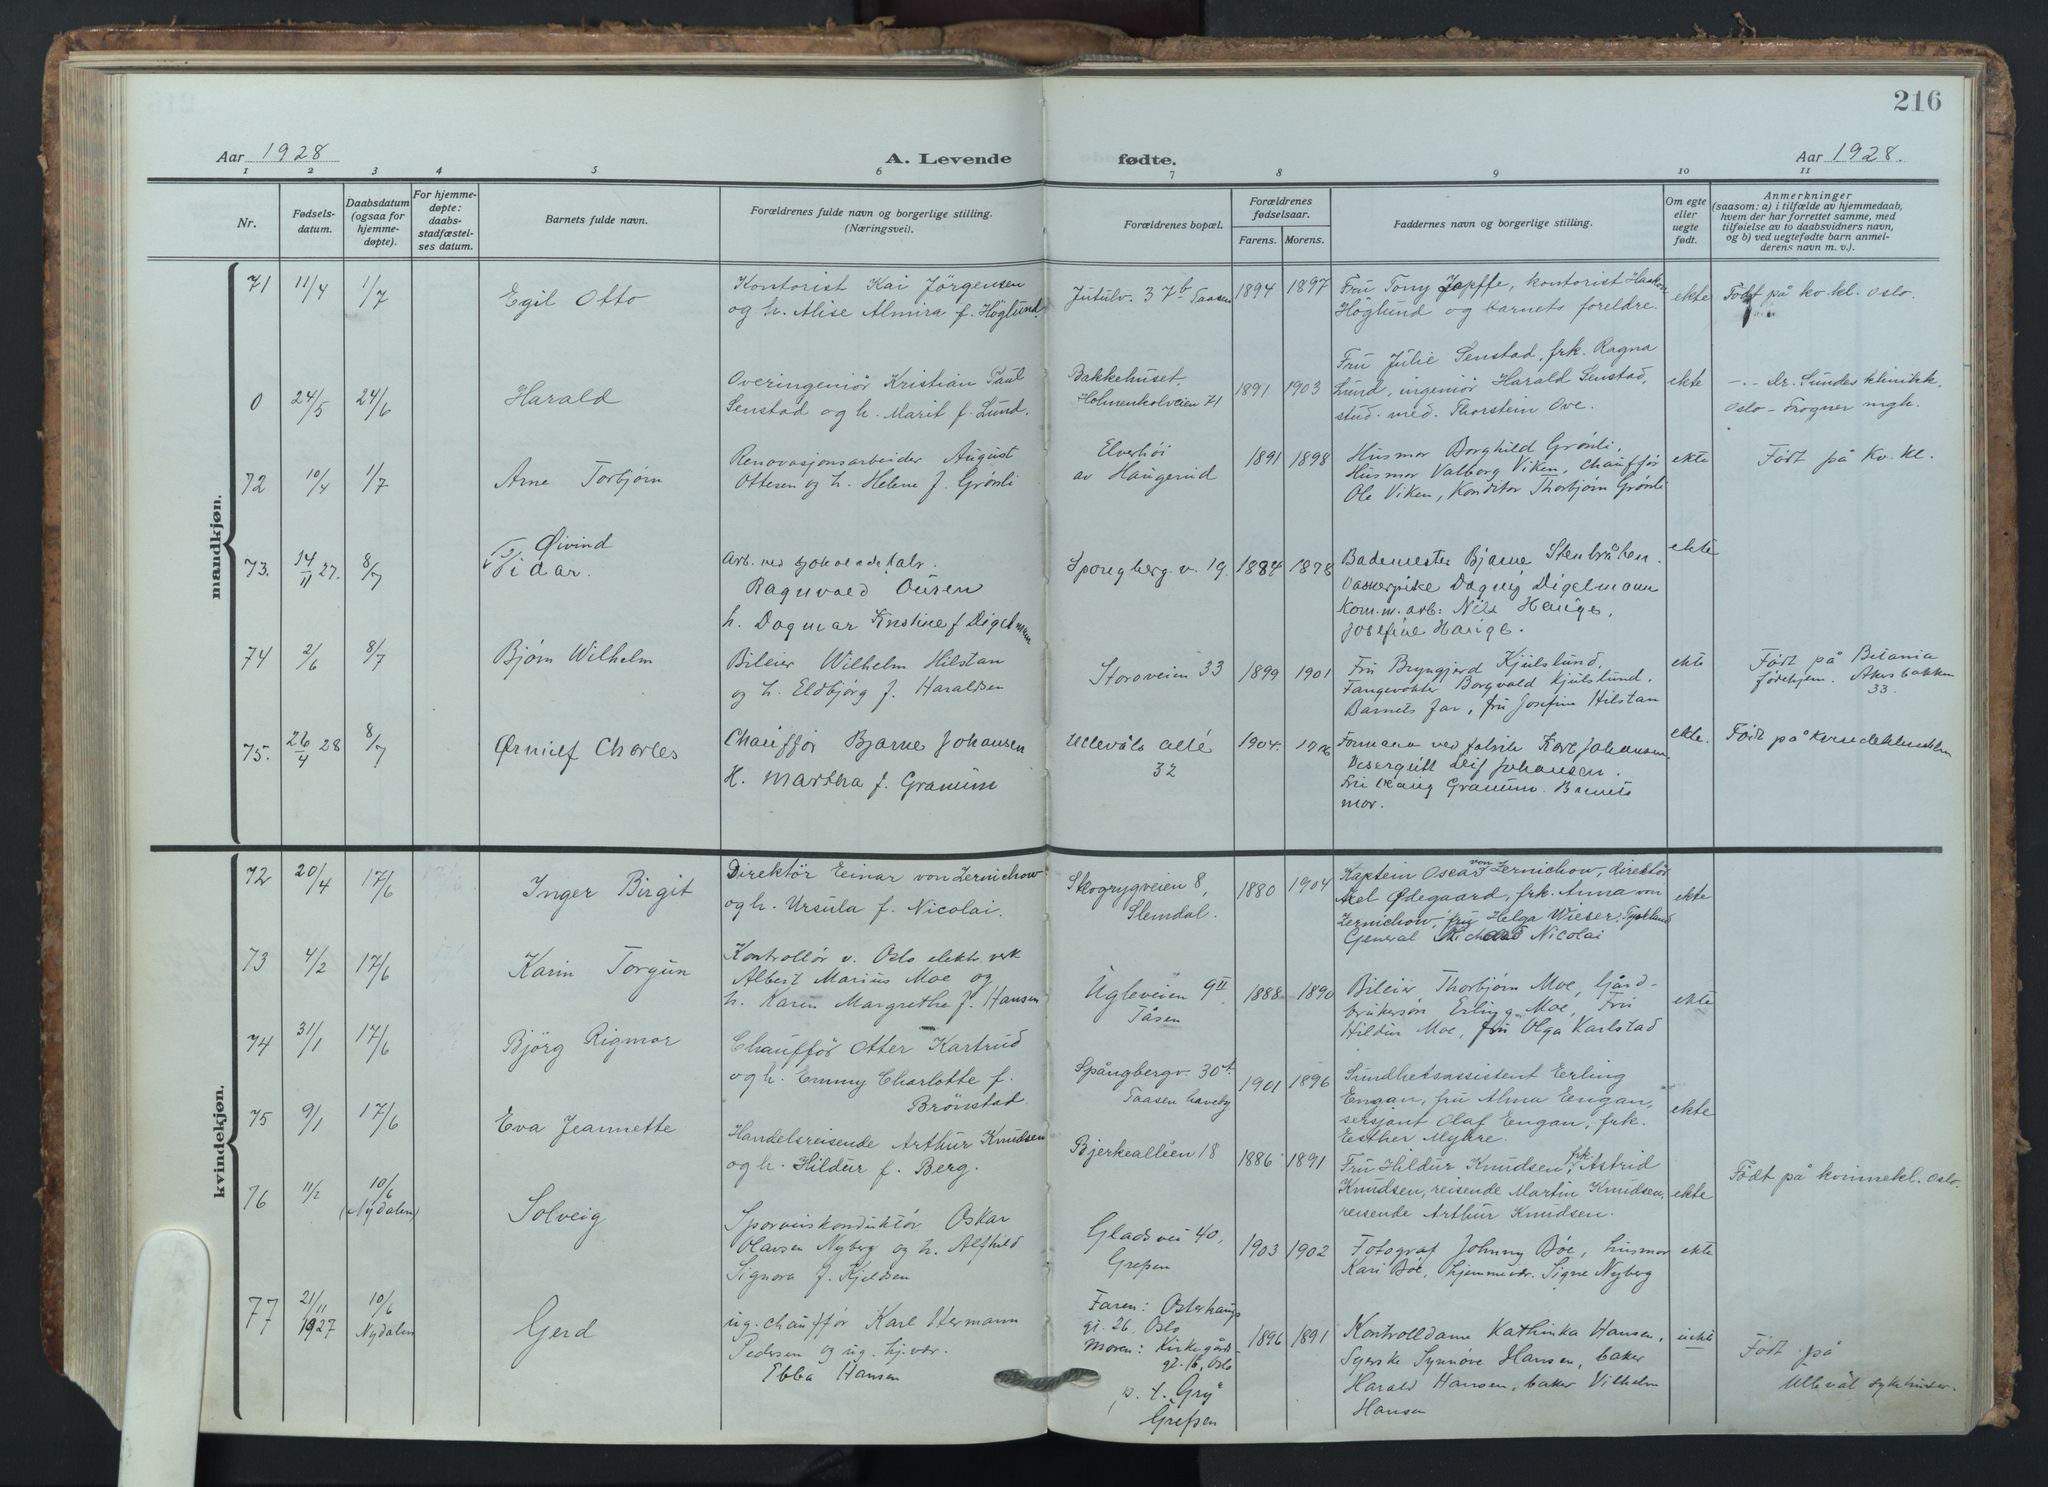 216
Aar 1928
A. Levende fødte.
Aar 1928.
1 2 3 4 5 6 7 8 9 10 11
Nr.
Fødsels-
datum.
Daabsdatum
(ogsaa for
hjemme-
døpte).
For hjemme-
døpte:
daabs-
stadfæstel-
ses datum.
Barnets fulde navn.
Forældrenes fulde navn og borgerlige stilling.
(Næringsvei).
Forældrenes bopæl.
Forældrenes
fødselsaar.
Farens. Morens.
Faddernes navn og borgerlige stilling.
Om egte
eller
uegte
født.
Anmerkninger
(saasom: a) i tilfælde av hjemmedaab,
hvem der har forrettet samme, med
tilføielse av to daabsvidners navn,
og b) ved uegtefødte barn anmel-
derens navn m. v.).
mandkjøn.
71 11/4 1/7 Egil Otto
Kontorist Kai Jörgensen
og h. Alise Almira f. Höglund.
Jutulv. 37b Taasen
1894 1897
Fru Tony Japffe, kontorist Haakon
Höglund og barnets foreldre.
ekte
Født på kv. kl. Oslo.
0 24/5 24/6 Harald
Overingeniör Kristian Paul
Senstad og h. Marit f. Lund.
Bakkehuset,
Holmenkolveien 71
1891 1903
Fru Julie Senstad, frk. Ragna
Lund, ingeniör Harald Senstad,
stud. med. Thorstein Ove.
ekte
-"- dr. Sundes klinikk.
Oslo - Frogner mgh.
72 10/4 1/7 Arne Torbjørn
Renovasjonsarbeider August
Ottesen og h. Helene f. Grønli
Elverhöi
av Haugerud
1891 1898
Husmor Borghild Grønli,
Husmor Valborg Viken, Chauffør
Ole Viken, Konditor Thorbjørn Grønli
ekte
Født på Kv. kl.
73. 14/11 27. 8/7 Øivind
Vidar.
Arb. ved
Ragnvald
h. Dagmar Kristine f Digelmann
Spongberg. v. 19.
1884 1878
Bademester Bjarne Stenbråten.
Dagny Digelmann
Kom. m. arb. Nils Hauge,
Josefine Hauge.
ekte
74 2/6 8/7 Bjørn Wilhelm
Bileier Wilhelm Hilstan
og h. Eldbjørg f. Haraldsen
Storoveien 33
1899 1901
Fru Bryngjerd Kjulslund,
Fangevokter Borgvald Kjulslund.
Barnets far, fru Josefine Hilstan
ekte
Født på Betania
fødehjem. Akersbakken
33.
75. 26/4 28 8/7 Ørnulf Charles
Chauffør Bjarne Johansen
H. Martha f. Granum
Ullevåls allé
32
1904.
Formann ved fabrik Karl Johansen.
Visergutt Leif Johansen.
Fru Granum. Barnets
mor.
ekte.
Født på Kvindeklinikken
kvindekjøn.
72 20/4 17/6 Inger Birgit
Direktör Einar von Zernichow
og h. Ursula f. Nicolai.
Skogrygveien 8,
Slemdal.
1880 1904
Kaptein Oscar von Zernichow, direktör
Axel Ødegaard, frk. Anna von
Zernichow, fru Helga Wieser, Tyskland
General Nicolai
ekte
73 4/2 17/6 Karin Torgun
Kontrollör v. Oslo elektr. verk
Albert Marius Moe og
h. Karen Margrethe f. Hansen
Ugleveien 9II
Tåsen
1888 1890
Bileier Thorbjørn Moe, Gård-
brukersön Erling Moe, Fru
Hildur Moe, fru Olga Karlstad
ekte
74 31/1 17/6 Björg Rigmor
Chauffør Otter Kartrud
og h. Emmy Charlotte f.
Brönstad.
Spångbergv. 30A
Taasen haveby
1901 1896
Sundhetsassistent Erling
Engan, fru Alma Engan,
sersjant Olaf Engan, frk.
Esther Myhre.
ekte
75 9/1 17/6 Eva Jeannette
Handelsreisende Arthur Knudsen
og h. Hildur f. Berg.
Bjerkealléen 18
1886 1891
Fru Hildur Knudsen, frk. Astrid
Knudsen, reisende Martin Knudsen,
reisende Arthur Knudsen.
ekte
Födt på kvinnekl. Oslo.
76 11/2 10/6
(Nydalen)
Solveig
Sporveiskonduktör Oskar
Olavsen Nyberg og h. Alfhild
Signora f. Kjeldsen
Gladsvei 40,
Grefsen
1903 1902
Fotograf Johnny Bøe, husmor
Kari Bøe, hjemmevær. Signe Nyberg
ekte
77 21/11 1927 10/6
Nydalen
Gerd
ug. chauffør Karl Herman
Pedersen og ug. hj.vær.
Ebba Hansen
Faren: Osterhaugs
gt. 26. Oslo
Moren: Kirkegårds-
gt. 16, Oslo
p. t. "Gry"
Grefsen
1896 1891
Kontrolldame Kathinka Hansen,
Syerske Synnöve Hansen, baker
Harald Hansen, baker Vilhelm
Hansen
uekte
Født på
Ullevål sykehuser.